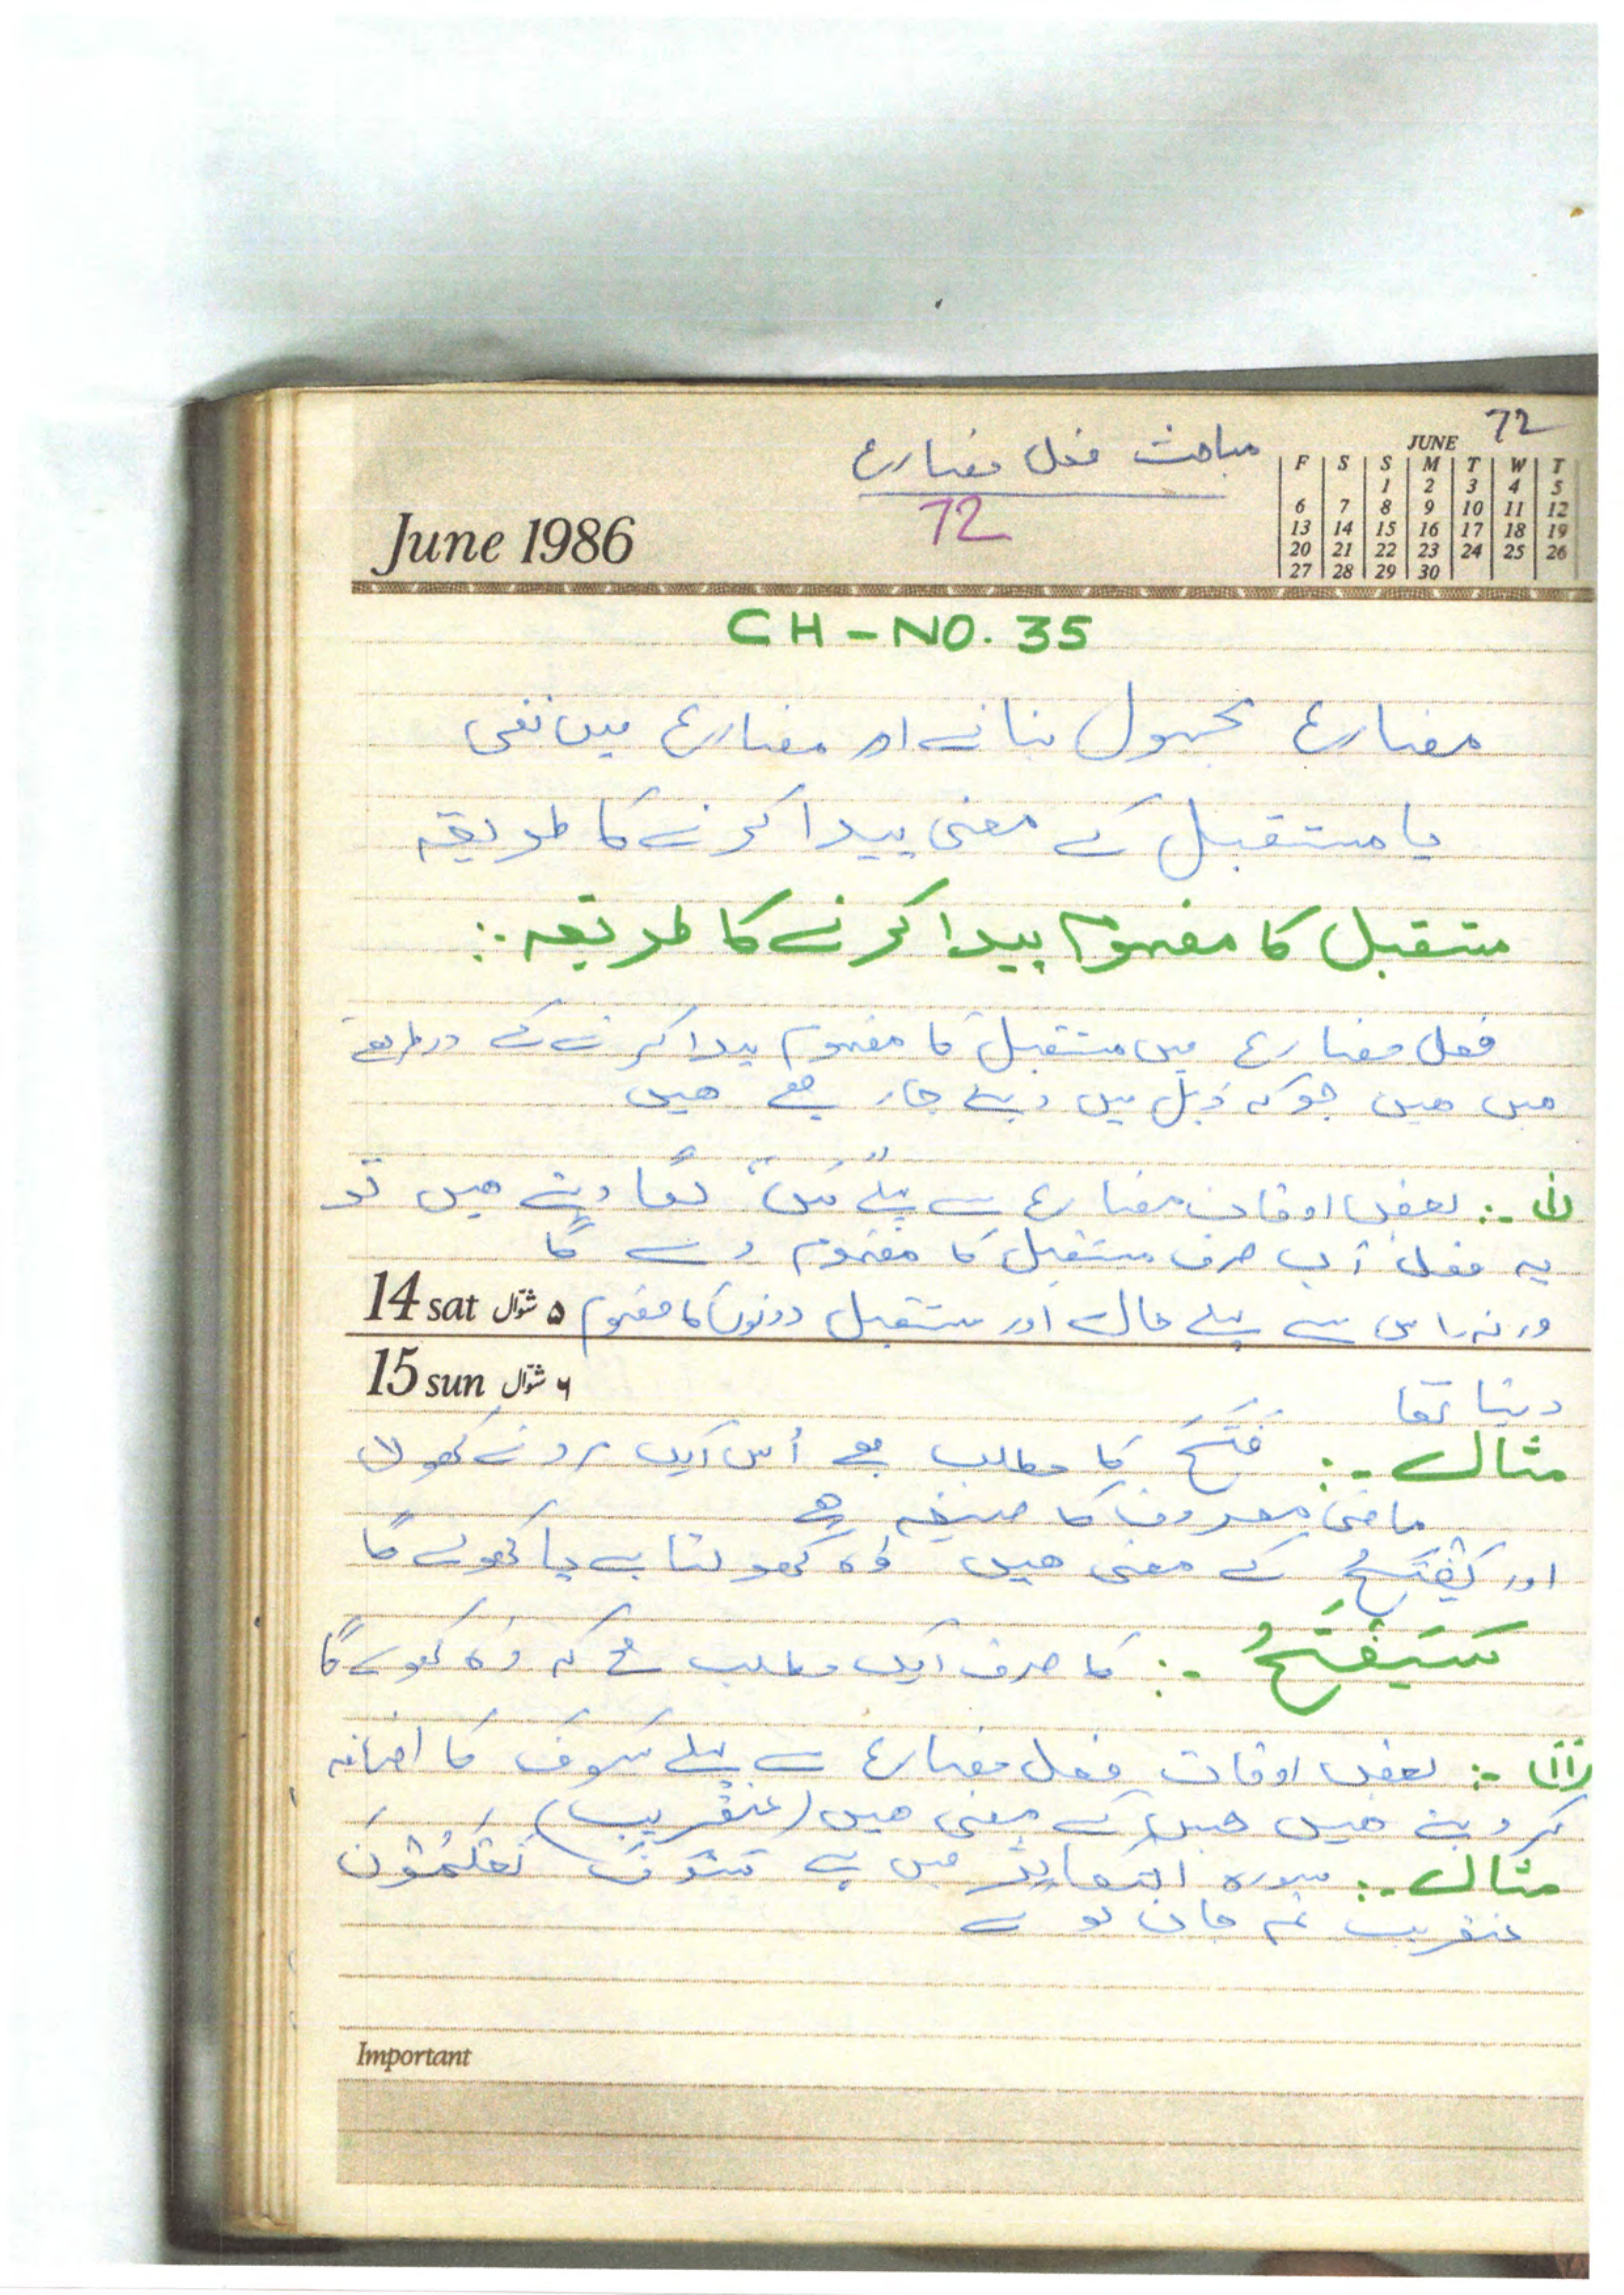 72
مباحث فعل مضارع
72
JUNE
F S S M T W T
1 2 3 4 5
6 7 8 9 10 11 12
13 14 15 16 17 18 19
20 21 22 23 24 25 26
27 28 29 30
June 1986
CH-NO. 35
مضارع مجہول بنانے اور مضارع میں نفی
یا مستقبل کے معنی پیدا کرنے کا طریقہ
مستقبل کا مفہوم پیدا کرنے کا طریقہ :
فعل مضارع میں مستقبل کا مفہوم پیدا کرنے کے دو طریقے
میں ہیں جو کہ ذیل میں دیئے جا رہے ہیں
(i) :- بعض اوقات مضارع سے پہلے "سَ" لگا دیتے ہیں تو
یہ فعل اب صرف مستقبل کا مفہوم دے گا
ورنہ اس سے پہلے حال اور مستقبل دونوں کا مفہوم
14 sat ۵ شوّال
15 sun ۶ شوّال
دیتا تھا
مثال :- فَتَحَ کا مطلب ہے اُس ایک مرد نے کھولا
ماضی معروف کا صیغہ ہے
اور یَفْتَحُ کے معنی ہیں وہ کھولتا ہے یا کھولے گا
سَیَفْتَحُ :- کا صرف ایک مطلب ہے کہ وہ کھولے گا
(ii) :- بعض اوقات فعل مضارع سے پہلے سَوْفَ کا اضافہ
کر دیتے ہیں جس کے معنی ہیں (عنقریب)
مثال :- سورہ التکاثر میں ہے سَوْفَ تَعْلَمُوْنَ
عنقریب تم جان لو گے
Important